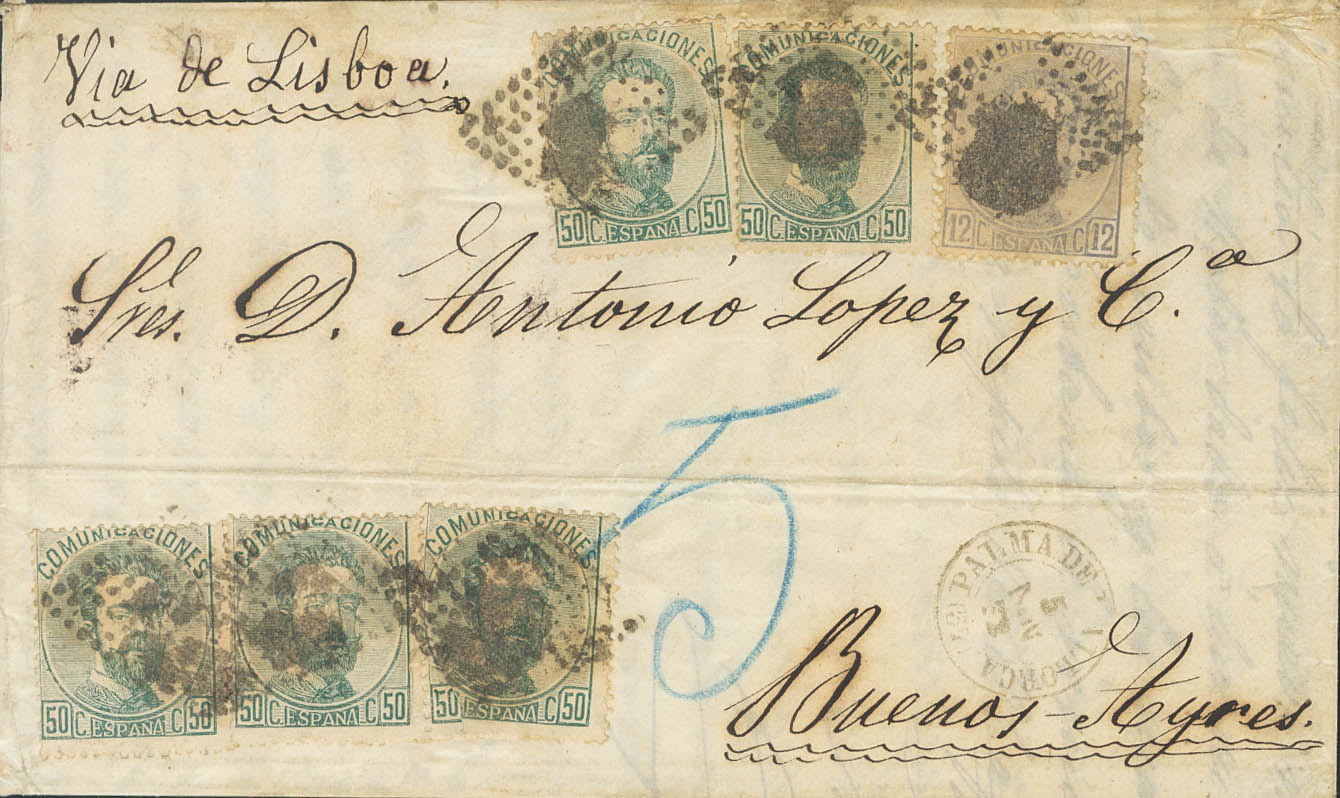 Via de Lisboa.
COMUNICACIONES
50 C. ESPAÑA C 50
COMUNICACIONES
50 C. ESPAÑA C 50
COMUNICACIONES
12 C. ESPAÑA C 12
Sres. D. Antonio Lopez y C.ª
5
COMUNICACIONES
50 C. ESPAÑA C 50
COMUNICACIONES
50 C. ESPAÑA C 50
COMUNICACIONES
50 C. ESPAÑA C 50
PALMA DE
5
Buenos-Ayres.